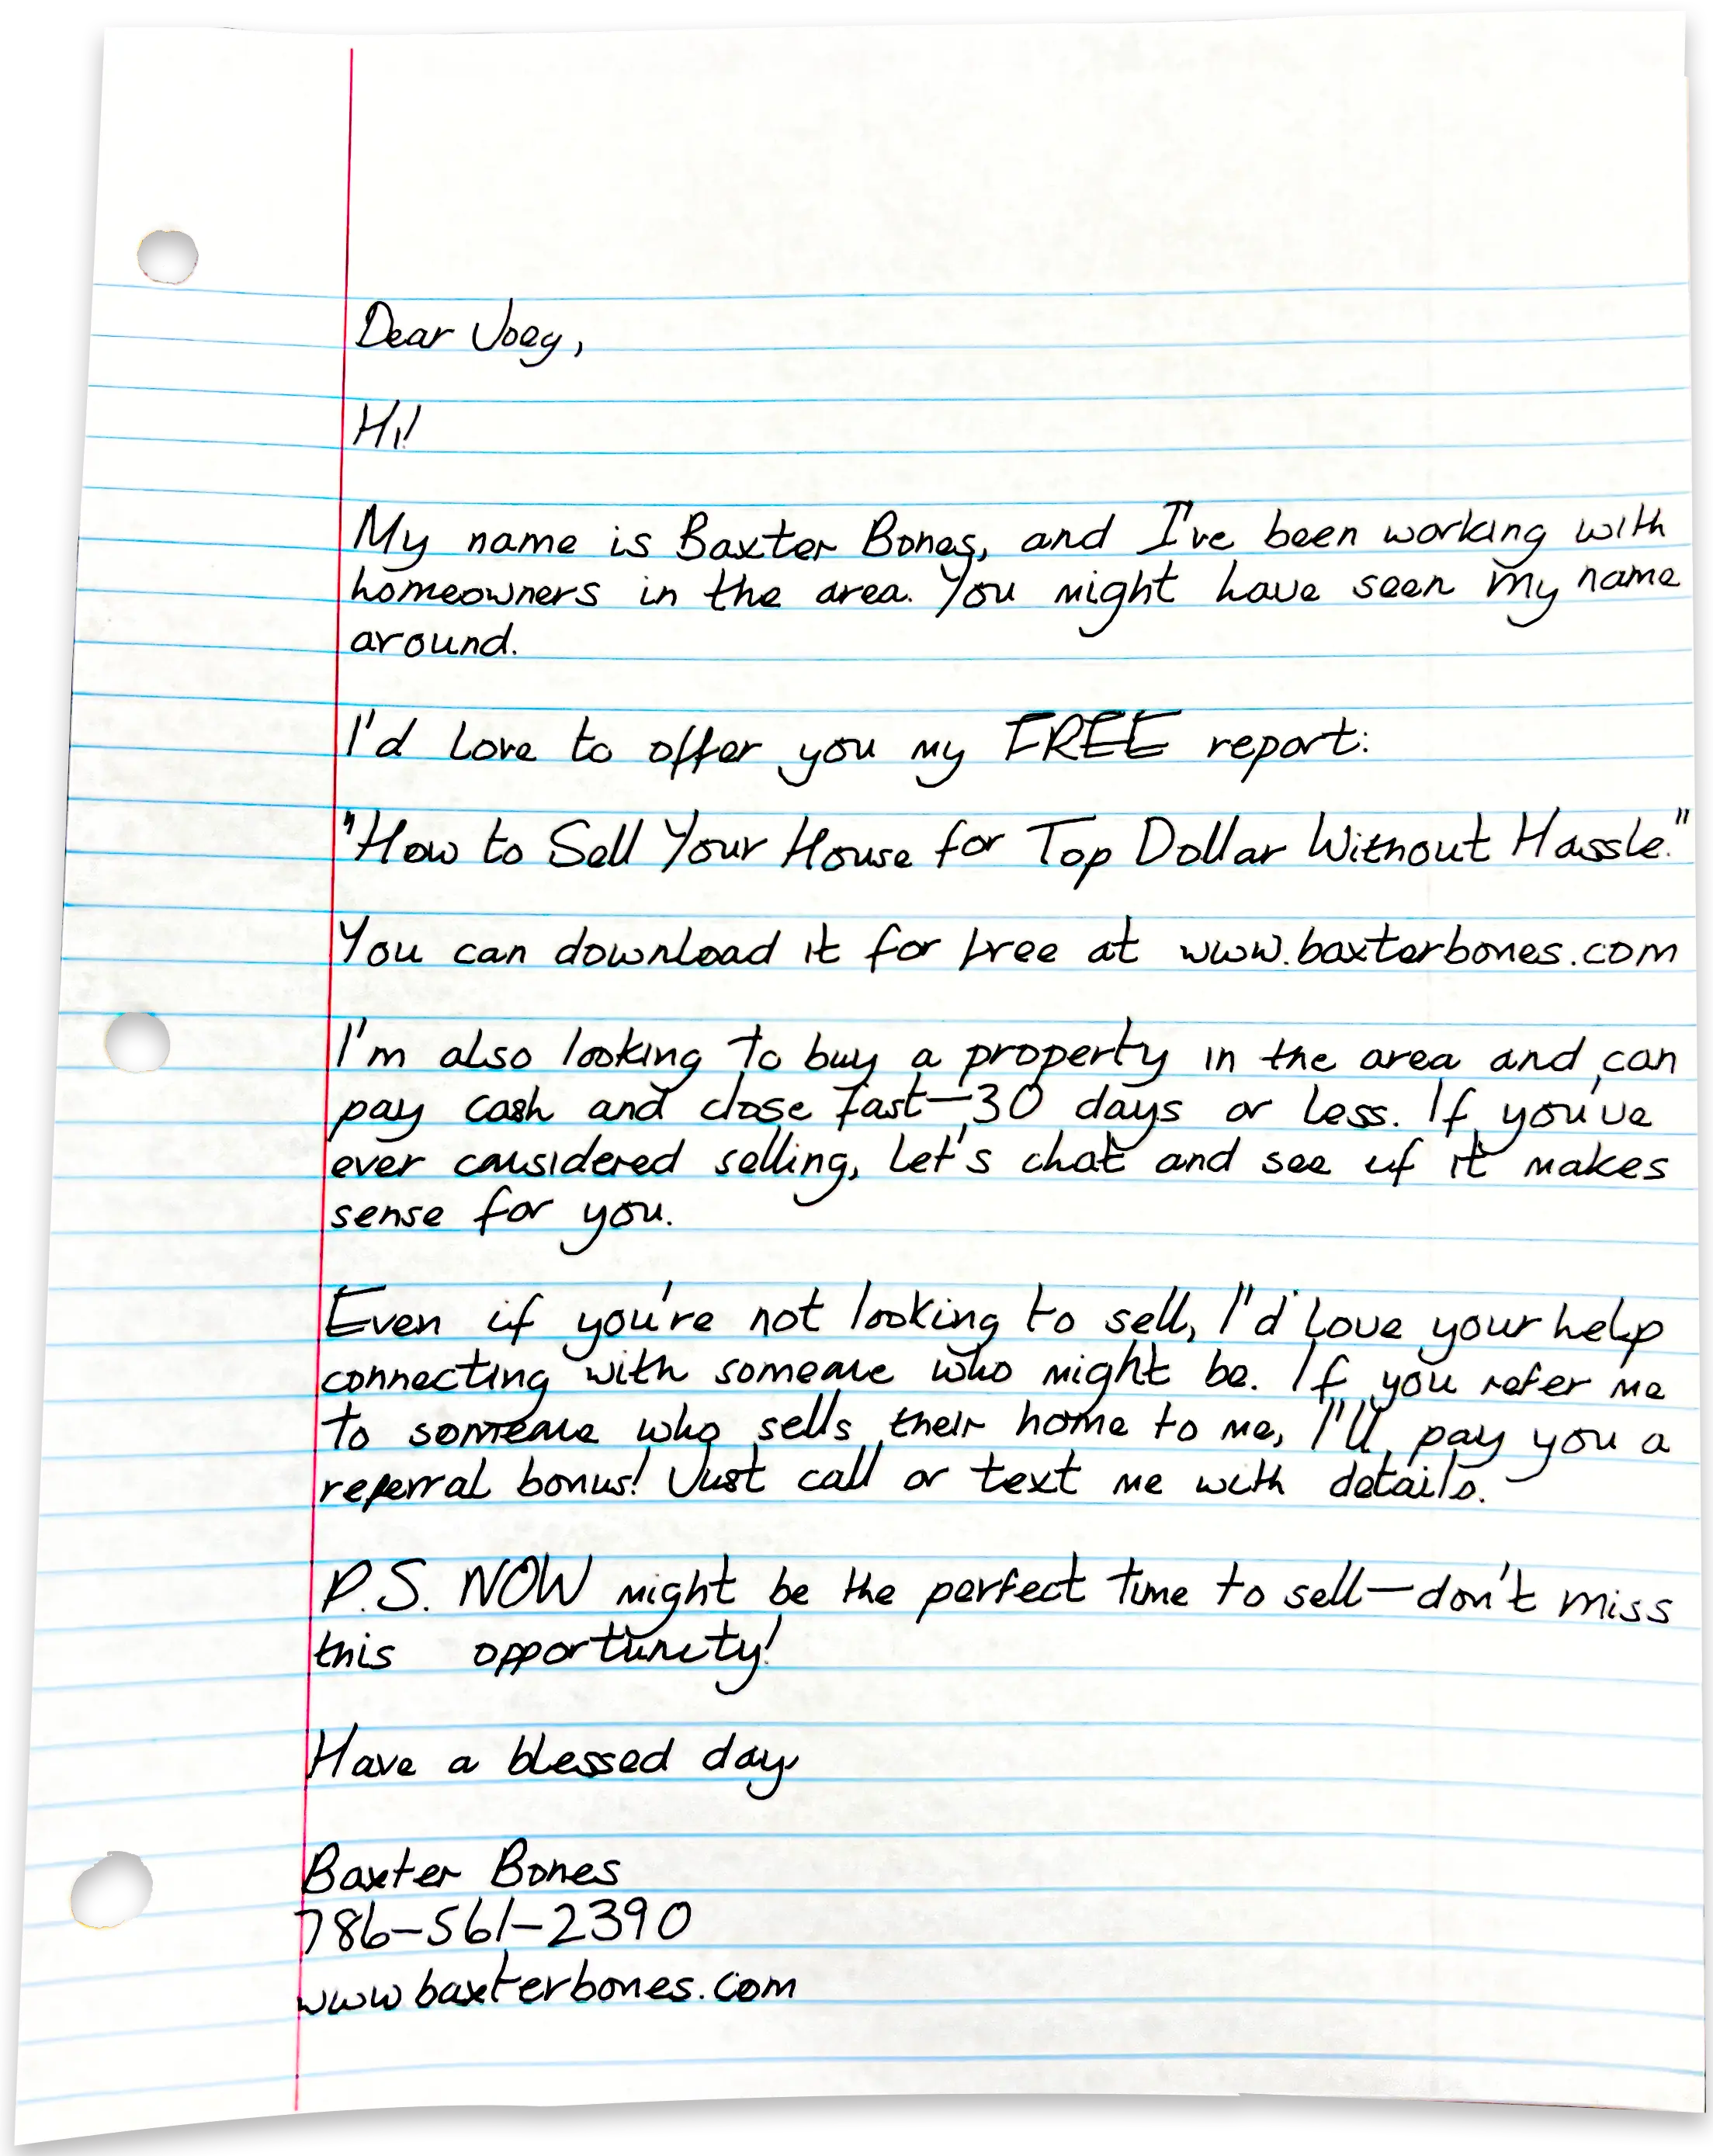 Dear Joey,
Hi!
My name is Baxter Bones, and I've been working with
homeowners in the area. You might have seen my name
around.
I'd love to offer you my FREE report:
"How to Sell Your House for Top Dollar Without Hassle."
You can download it for free at www.baxterbones.com
I'm also looking to buy a property in the area and can
pay cash and close fast—30 days or less. If you've
ever considered selling, let's chat and see if it makes
sense for you.
Even if you're not looking to sell, I'd love your help
connecting with someone who might be. If you refer me
to someone who sells their home to me, I'll pay you a
referral bonus! Just call or text me with details.
P.S. NOW might be the perfect time to sell—don't miss
this opportunity!
Have a blessed day,
Baxter Bones
786-561-2390
www.baxterbones.com